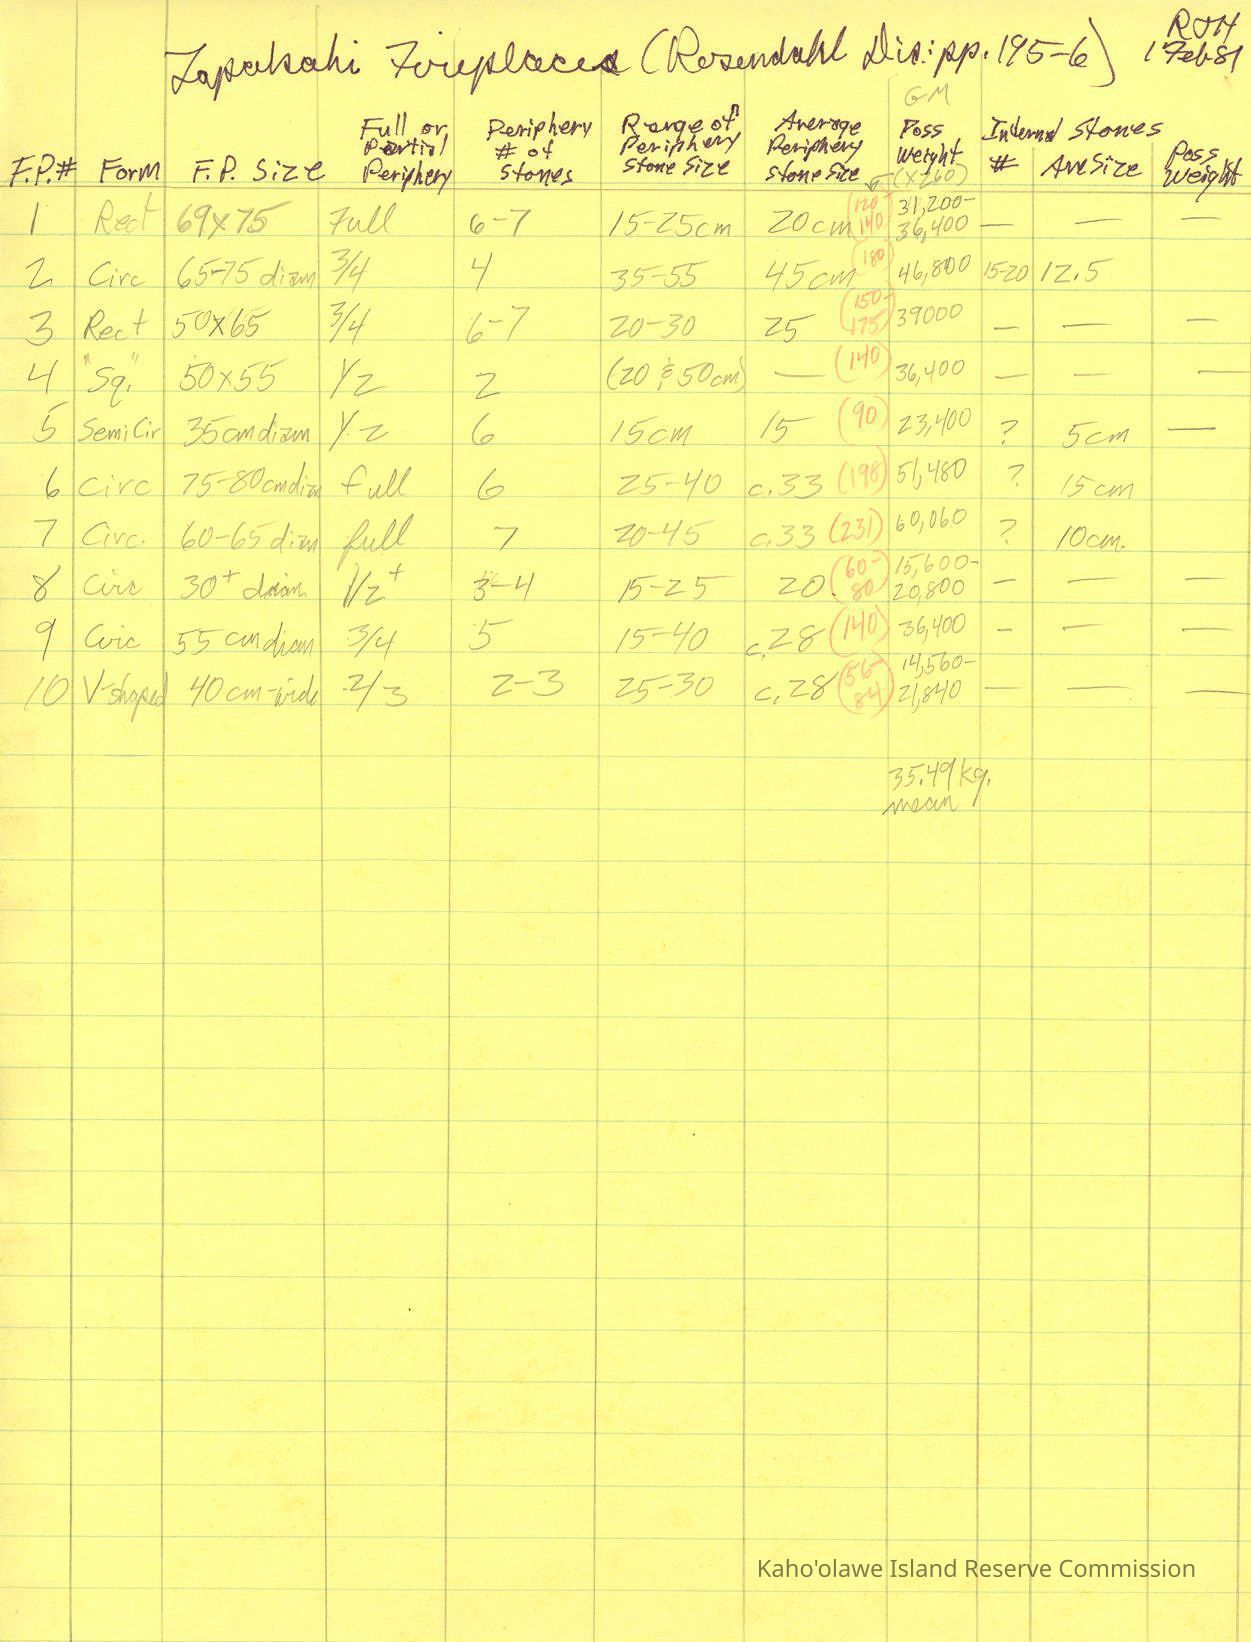 Lapakahi Fireplaces (Rosendahl Dis: pp. 195-6) RJH
1 Feb 81
F.P.# Form F.P. Size Full or Partial Periphery Periphery # of Stones Range of Periphery Stone Size Average Periphery Stone Size GM Poss Weight (x260) Internal Stones # Ave Size Poss Weight
1 Rect 69x75 Full 6-7 15-25cm 20cm (120-140) 31,200-36,400 — — —
2 Circ 65-75 diam 3/4 4 35-55 45cm (180) 46,800 15-20 12.5
3 Rect 50x65 3/4 6-7 20-30 25 (150-175) 39000 — — —
4 "Sq." 50x55 1/2 2 (20 & 50cm) — (140) 36,400 — — —
5 SemiCir 35cm diam 1/2 6 15cm 15 (90) 23,400 ? 5cm —
6 Circ 75-80cm diam full 6 25-40 c.33 (198) 51,480 ? 15cm
7 Circ. 60-65 diam full 7 20-45 c.33 (231) 60,060 ? 10cm.
8 Circ 30+ diam. 1/2+ 3-4 15-25 20 (60-80) 15,600-20,800 — — —
9 Circ 55 cm diam 3/4 5 15-40 c.28 (140) 36,400 — — —
10 V-shaped 40 cm-wide 2/3 2-3 25-30 c.28 (56-84) 14,560-21,840 — — —
35.49 kg.
mean
Kaho'olawe Island Reserve Commission